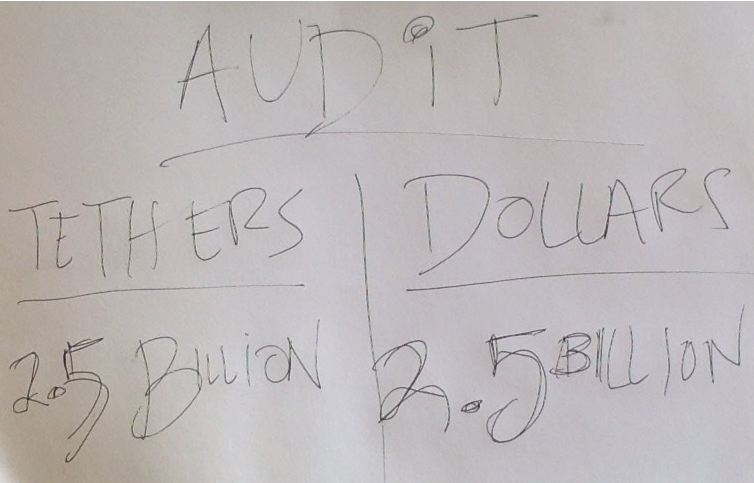 AUDiT
TETHERS | DOLLARS
2.5 BILLiON | 2.5 BILLION